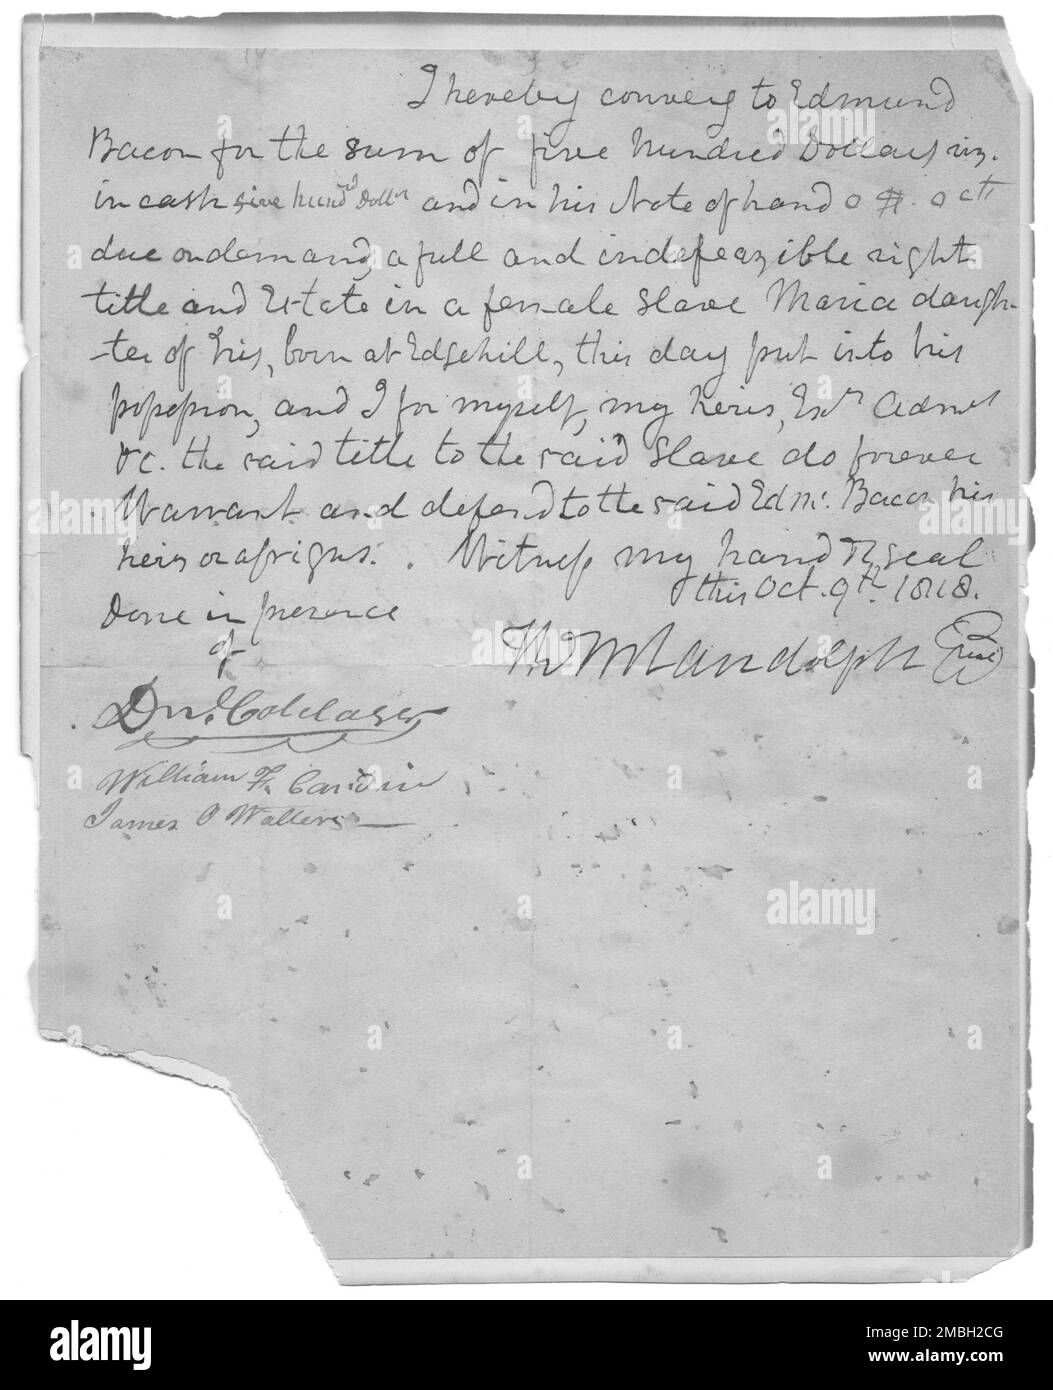 I hereby convey to Edmund
Bacon for the sum of five hundred Dollars viz.
in cash five hund^d Doll^rs and in his Note of hand 0 $. 0 cts
due on demand, a full and indefeazible right
title and Estate in a female slave Maria daugh-
-ter of Iris, born at Edgehill, this day put into his
possession, and I for myself, my heirs, Ex^rs Adm^rs
&c. the said title to the said slave do forever
Warrant and defend to the said Edm: Bacon his
heirs or assigns. . Witness my hand & seal
this Oct. 9th. 1818.
Done in presence
of
Th M Randolph
William Cardin
James O Walters
alamy
Image ID: 2MBH2CG
www.alamy.com